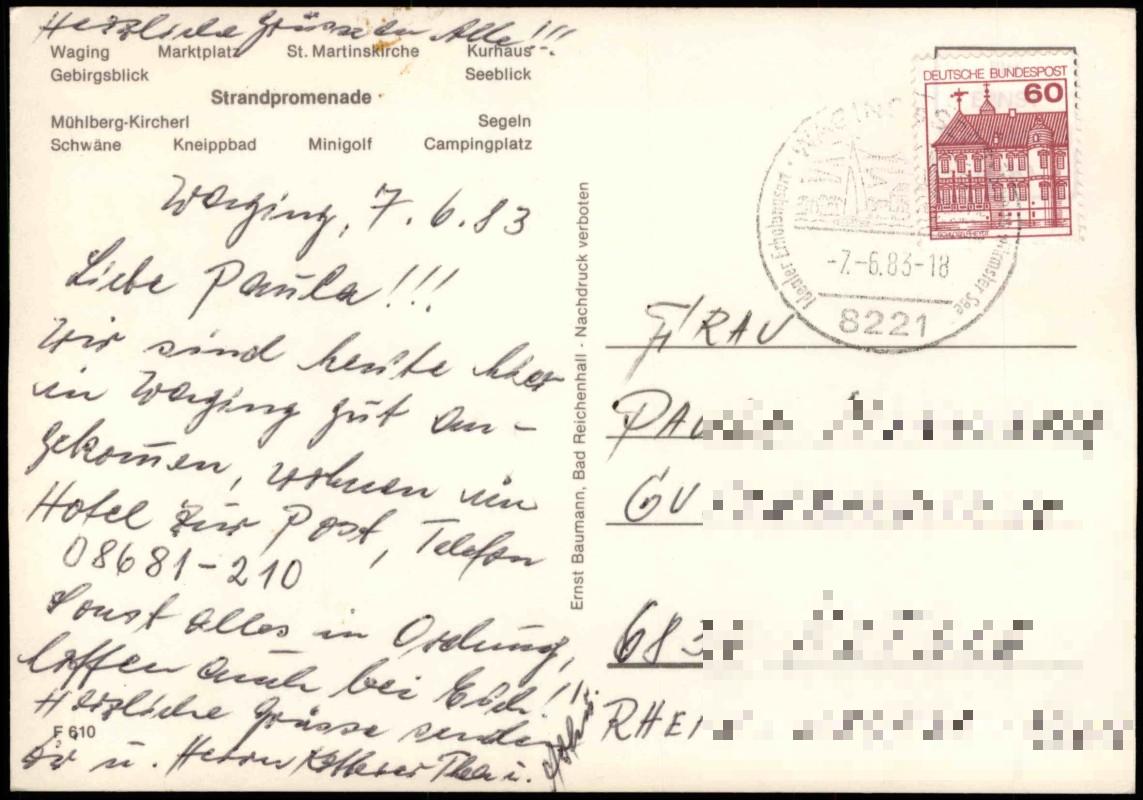 Herzliche Grüsse an Alle!!!
Waging Marktplatz St. Martinskirche Kurhaus
Gebirgsblick Seeblick
Strandpromenade
Mühlberg-Kircherl Segeln
Schwäne Kneippbad Minigolf Campingplatz
Waging, 7.6.83
Liebe Paula!!!
Wir sind heute hier
in Waging gut an-
gekommen, wohnen im
Hotel zur Post, Telefon
08681-210
Sonst alles in Ordnung,
hoffen auch bei Euch!!
Herzliche Grüsse senden
Dir u. Herrn Thea u.
F 610
Ernst Baumann, Bad Reichenhall - Nachdruck verboten
DEUTSCHE BUNDESPOST
60
WAGING
Idealer Erholungsort
wärmster See
-7.-6.83-18
8221
FRAU
PAU
GU
683
RHEI